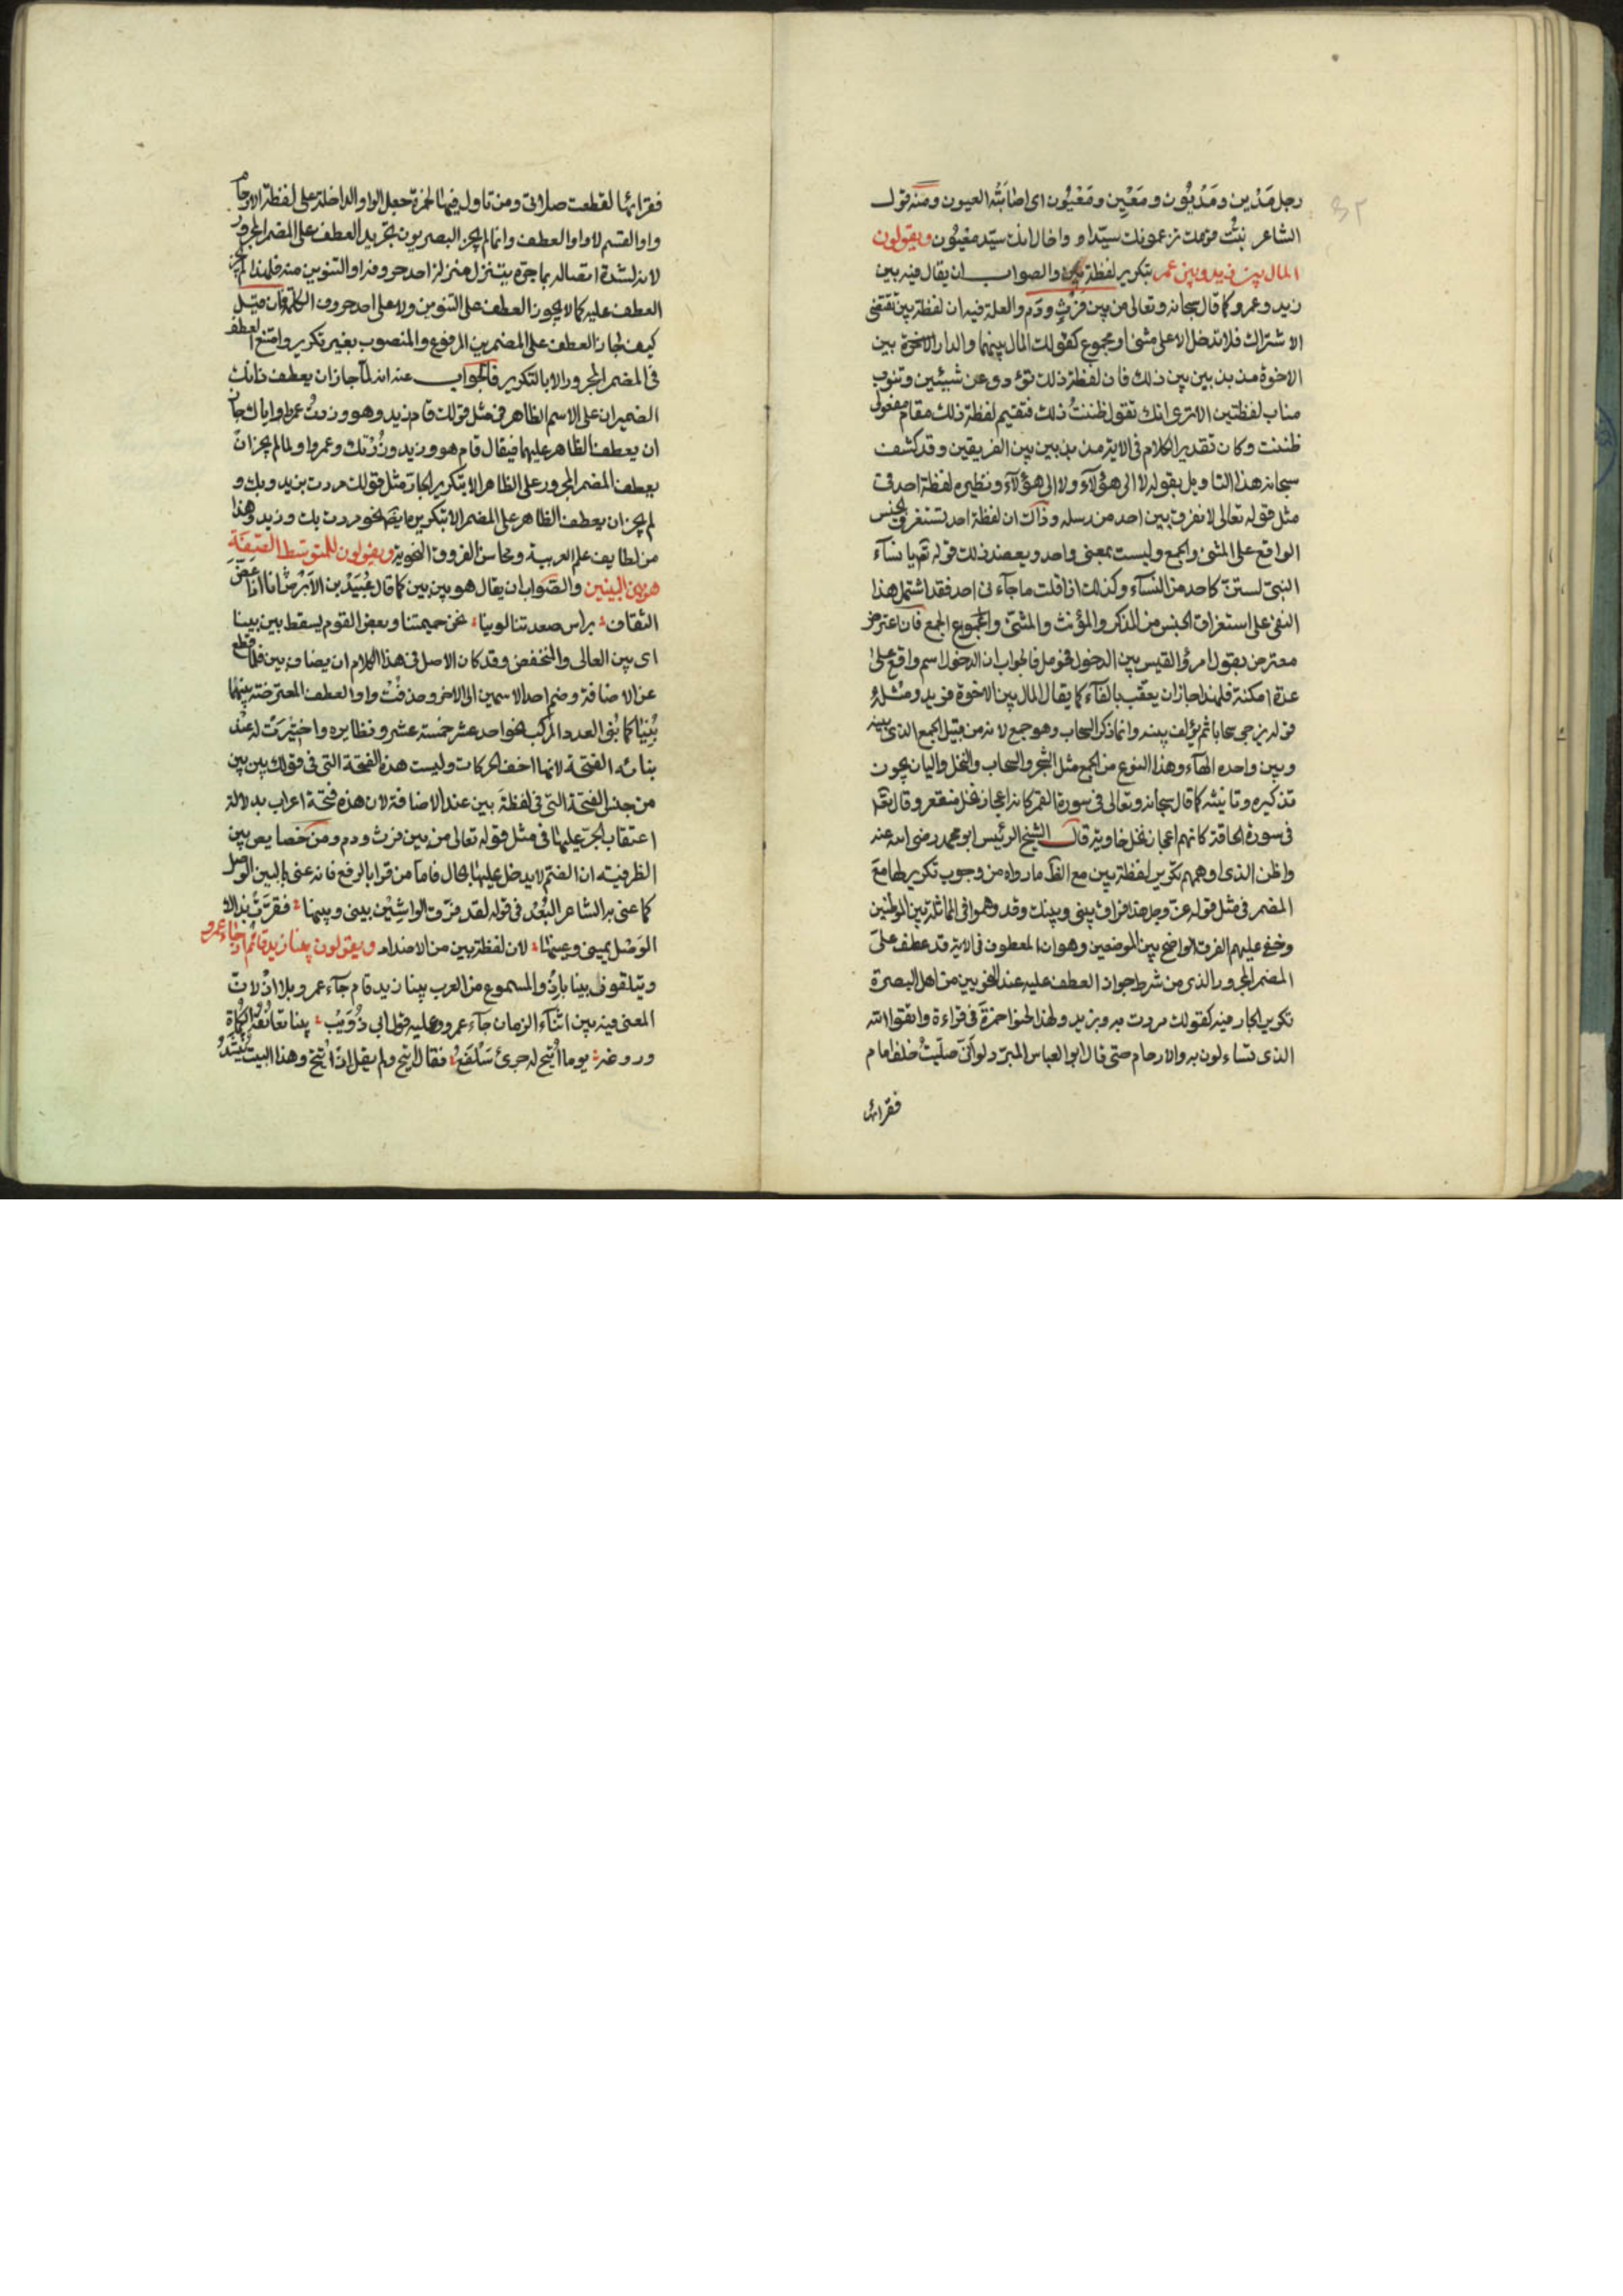 ٣٢
رجل مَدْين ومَدْيُون ومَعْيِن ومَعْيُون اى اصَابَتْه العيون ومنه قول
الشاعر نبئت قومك يزعمونك سيّدا واخال انك سيّد مغيُون ويقولون
المال بين زيد وبين عمر بتكرير لفظة بين والصواب ان يقال فيه بين
زيد وعمرو كما قال سبحانه وتعالى من بين فَرْثٍ ودَم والعلة فيه ان لفظة بين تقتضى
الاشتراك فلا تدخل الا على مثنى او مجموع كقولك المال بينهما والدار الاخوة بين
الاخوة مذبذبين بين ذلك فان لفظة ذلك تؤدى عن شيئين وتنوب
مناب لفظتين الا ترى انك تقول ظننتُ ذلك فتقيم لفظة ذلك مقام مفعولى
ظننت وكان تقدير الكلام فى الاية مذبذبين بين الفريقين وقد كشف
سبحانه هذا التاويل بقوله لا الى هؤلآء ولا الى هؤلآء ونظيره لفظة احد فى
مثل قوله تعالى لا نفرق بين احد من رسله وذاك ان لفظة احد تستغرق الجنس
الواقع على المثنى والجمع وليست بمعنى واحد ويعضد ذلك قوله تعٰ يا نسآء
النبىّ لستنّ كاحد من النسآء وكذلك اذا قلت ما جآءنى احد فقد اشتمل هذا
النفى على استغراق الجنس من المذكر والمؤنث والمثنى والمجموع الجمع فان اعترض
معترض بقول امرؤ القيس بين الدخول فحومل فالجواب ان الدخول اسم واقع على
عدة امكنة فلهذا جاز ان يعقّب بالفآء كما يقال المال بين الاخوة فزيد ومثله
قوله يزجى سحابا ثم يؤلف بينه وانما ذكر السحاب وهو جمع لانه من قبيل الجمع الذى بينه
وبين واحده الهآء وهذا النوع من الجمع مثل الشجر والسحاب والنخل واليان يجوز
تذكيره وتانيثه كما قال سبحانه وتعالى فى سورة القمر كانه اعجاز نخل منقعر وقال تعٰ
فى سورة الحاقة كانهم اعجاز نخل خاوية قال الشيخ الرئيس ابو محمد رضى الله عنه
واظن الذى اوهمهم تكرير لفظة بين مع الظاهر ما رواه من وجوب تكريرها مع
المضمر فى مثل قوله عزّ وجل هذا فراق بينى وبينك وقد وهموا فى المماثلة بين الموطنين
وخفى عليهم الفرق الواضح بين الموضعين وهو ان المعطوف فى الاية قد عطف على
المضمر المجرور الذى من شرط جواز العطف عليه عند النحويين من اهل البصرة
تكرير الجار فيه كقولك مررت به وبزيد ولهذا لحنوا حمزة فى قراءة واتقوا الله
الذى تساءلون به والارحام حتى قال ابو العباس المبرّد لو انّى صلّيتُ خلف امام
فقرا بها
فقرا بها لقطعت صلاتى ومن تاول فيها لحمزة جعل الواو الداخلة على لفظة الارحام
واو القسم لا واو العطف وانما لم يجز البصريون تجريد العطف على المضمر المجرور
لانه لشدة اتصاله بما جرّه يتنزل منزلة احد حروفه او التنوين منه فلهذا لم يجز
العطف عليه كما لا يجوز العطف على التنوين ولا على احد حروف الكلمة فان قيل
كيف جاز العطف على المضمرين المرفوع والمنصوب بغير تكرير وامتنع العطف
فى المضمر المجرور الا بالتكرير فالجواب عنه انه لما جاز ان يعطف ذانك
الضميران على الاسم الظاهر فى مثل قولك قام زيد وهو وزرتُ عمرا واياك جاز
ان يعطف الظاهر عليهما فيقال قام هو وزيد وزُرْتك وعمرا ولما لم يجز ان
يعطف المضمر المجرور على الظاهر الا بتكرير الجار مثل قولك مررت بزيد وبك و
لم يجز ان يعطف الظاهر على المضمر الا بتكريره ايضا نحو مررت بك وزيد وهذا
من لطايف علم العربية ومحاسن الفروق النحوية ويقولون للمتوسط الصّفة
هو بين البينين والصّواب ان يقال هو بين بين كما قال عُبَيْد بن الاَبْرَص انا اذا عَضّ
الثقاف براس صعدتنا لوينا نحن حميمتنا وبعض القوم يسقط بين بينا
اى بين العالى والمنخفض وقد كان الاصل فى هذا الكلام ان يضاف بين فلما قطع
عن الاضافة وضم احد الاسمين الى الاخر وحذفت واو العطف المعترضة بينهما
بُنِيَا كما بُنى العدد المركب نحو احد عشر خمسة عشر ونظايره واختيرَت له عند
بنائه الفتحة لانها اخف الحركات وليست هذه الفتحة التى فى قولك بين بين
من جنس الفتحة التى فى لفظة بين عند الاضافة لان هذه فتحة اعراب بدلالة
اعتقاب الجرّ عليها فى مثل قوله تعالى من بين فرث ودم ومن خصايص بين
الظرفيته ان الضم لا يدخل عليها بحال فاما من قرا بالرفع فانه عنى بالبين الوصل
كما عنى به الشاعر البُعْد فى قوله لقد فرّق الواشِيْن بينى وبينها فقرّتْ بذاك
الوَصْل عينى وعينها لان لفظة بين من الاضداد ويقولون بينا زيد قائم اذ جاء عمرو
ويتلقون بينا باذ والمسموع من العرب بينا زيد قام جآء عمرو بلا اذ لان
المعنى فيه بين اثنآء الزمان جآء عمرو وعليه قول ابى ذُؤَيْب بينا تعانُقه الكُماة
وروغه يوما اُتيح له جرئ سَلْفَع فقال اتيح ولم يقل اذ اتيح وهذا البيت يُنشد